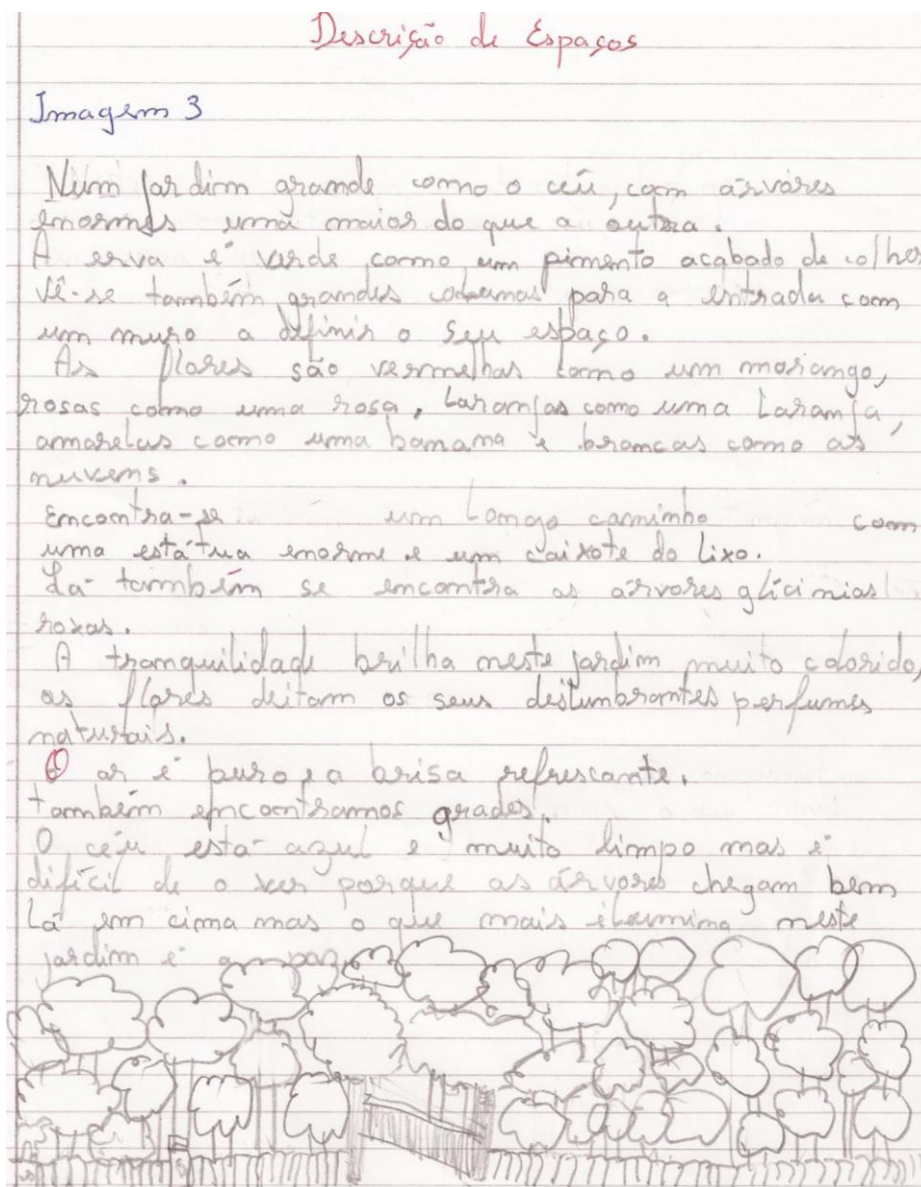 Descrição de Espaços
Imagem 3
Num jardim grande como o céu, com árvores
enormes uma maior do que a outra.
A erva é verde como um pimento acabado de colher
Vê-se também grandes colunas para a entrada com
um muro a definir o seu espaço.
As flores são vermelhas como um morango,
rosas como uma rosa, Laranjas como uma Laranja,
amarelas como uma banana e brancas como as
nuvens.
Encontra-se um Longo caminho com
uma estátua enorme e um caixote do lixo.
Lá também se encontra as árvores glícinias
roxas.
A tranquilidade brilha neste jardim muito colorido,
as flores deitam os seus deslumbrantes perfumes
naturais.
O ar é puro, a brisa refrescante.
também encontramos grades.
O céu está azul e muito limpo mas é
difícil de o ver porque as árvores chegam bem
Lá em cima mas o que mais ilumina neste
jardim é a paz